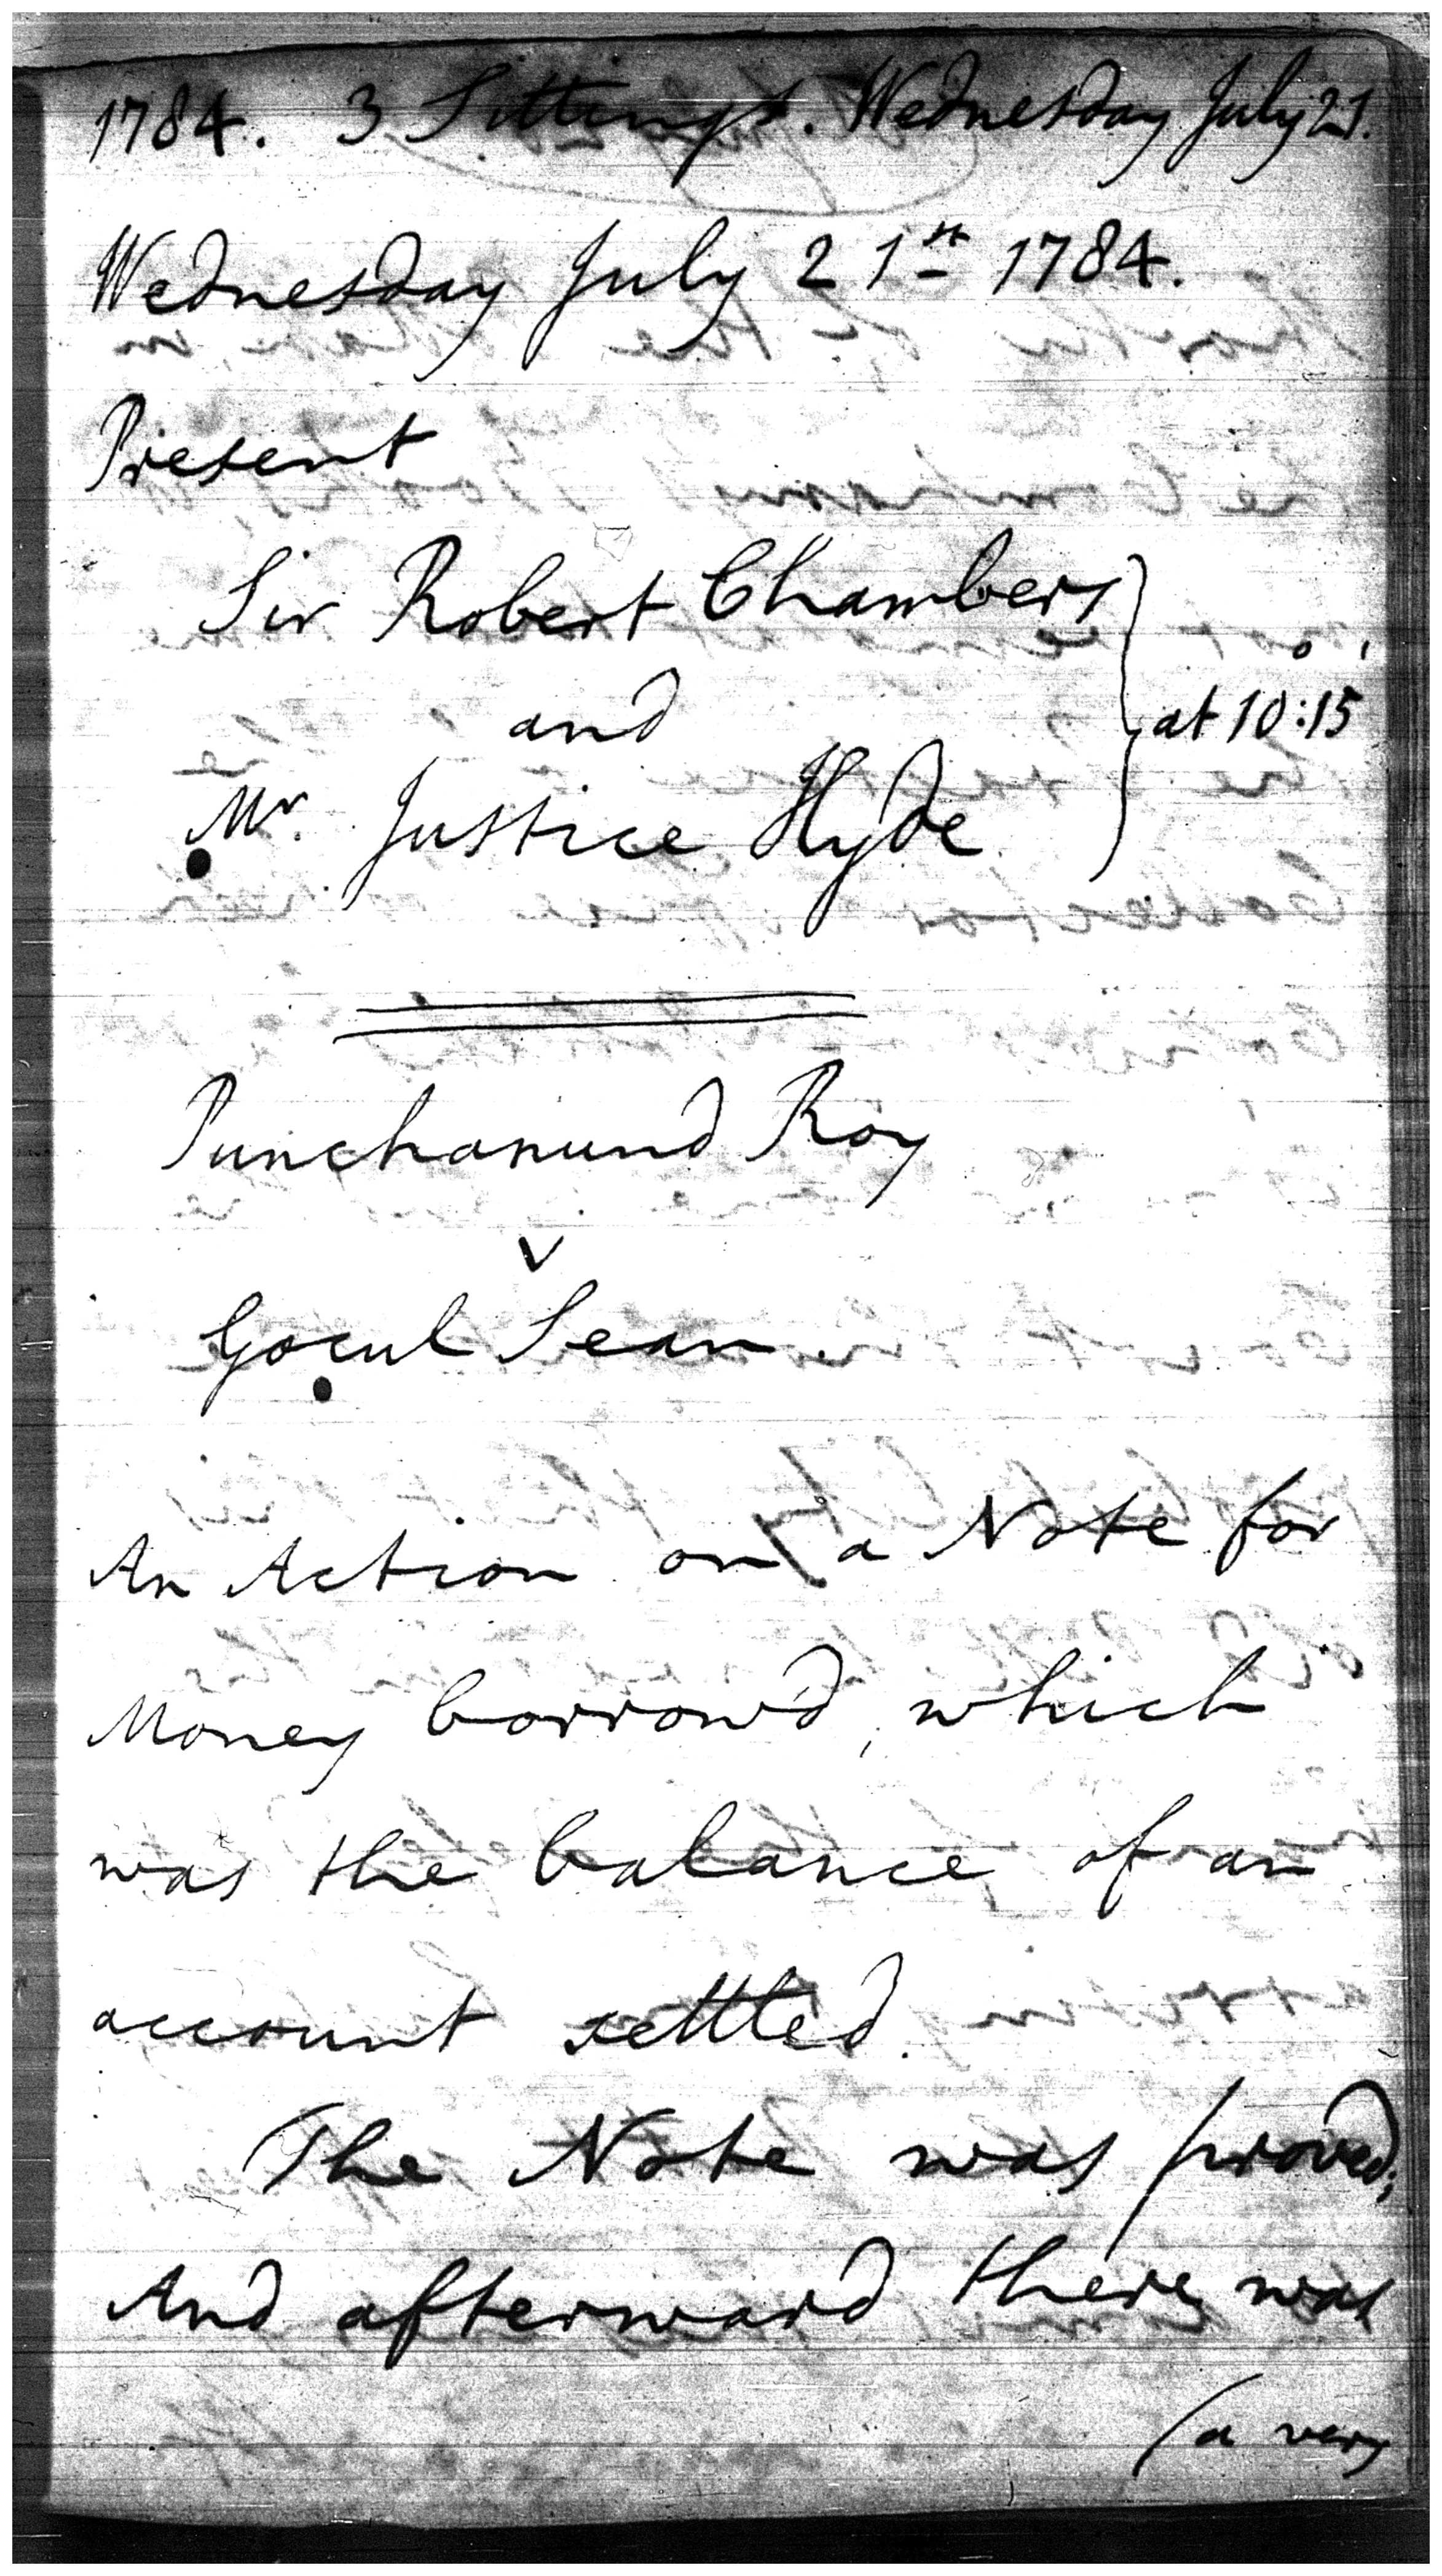 1784. 3 Sittings. Wednesday July 21.
Wednesday July 21st 1784.
Present
Sir Robert Chambers
and
Mr. Justice Hyde
at 10°:15'
Punchanund Roy
v
Gocul Sean.
An Action on a Note for
Money borrow'd, which
was the balance of an
account settled.
The Note was proved;
And afterward there was
(a very